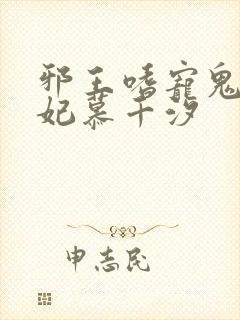 邪王嗜寵鬼
妃慕千汐
申志民